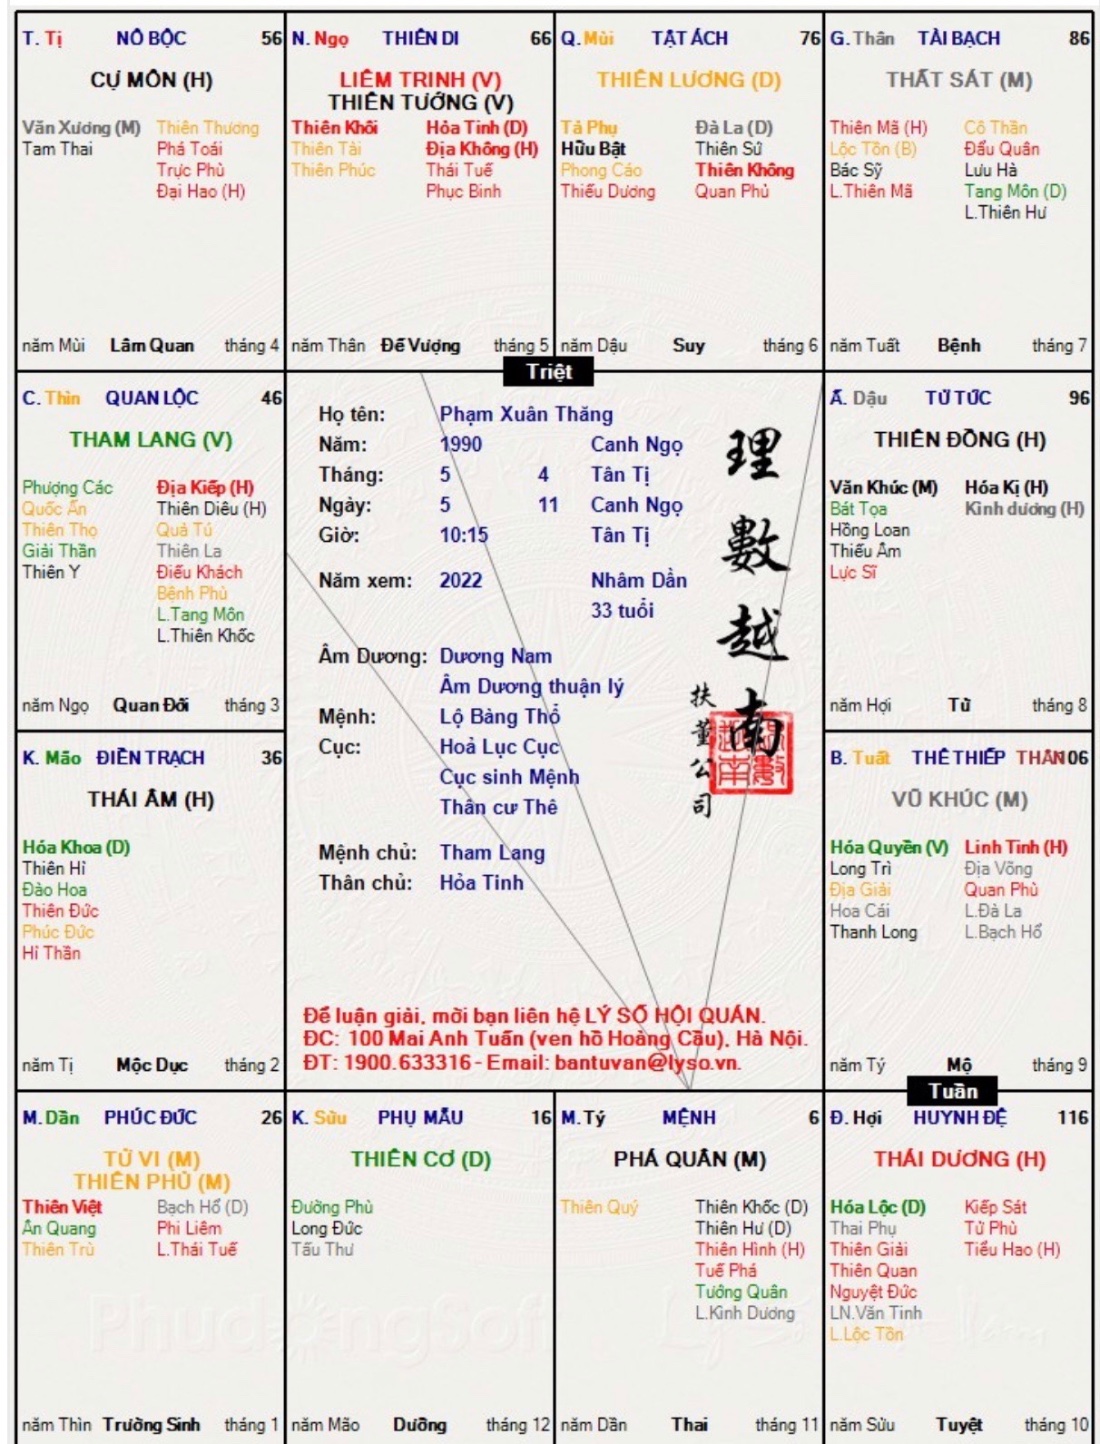 T. Tị NÔ BỘC 56
CỰ MÔN (H)
Văn Xương (M) Thiên Thương
Tam Thai Phá Toái
Trực Phù
Đại Hao (H)
năm Mùi Lâm Quan tháng 4
N. Ngọ THIÊN DI 66
LIÊM TRINH (V)
THIÊN TƯỚNG (V)
Thiên Khôi Hỏa Tinh (D)
Thiên Tài Địa Không (H)
Thiên Phúc Thái Tuế
Phục Binh
năm Thân Đế Vượng tháng 5
Q. Mùi TẬT ÁCH 76
THIÊN LƯƠNG (D)
Tả Phụ Đà La (D)
Hữu Bật Thiên Sứ
Phong Cáo Thiên Không
Thiếu Dương Quan Phủ
năm Dậu Suy tháng 6
G. Thân TÀI BẠCH 86
THẤT SÁT (M)
Thiên Mã (H) Cô Thần
Lộc Tồn (B) Đẩu Quân
Bác Sỹ Lưu Hà
L.Thiên Mã Tang Môn (D)
L.Thiên Hư
năm Tuất Bệnh tháng 7
Triệt
C. Thìn QUAN LỘC 46
THAM LANG (V)
Phượng Các Địa Kiếp (H)
Quốc Ấn Thiên Diêu (H)
Thiên Thọ Quả Tú
Giải Thần Thiên La
Thiên Y Điếu Khách
Bệnh Phù
L.Tang Môn
L.Thiên Khốc
năm Ngọ Quan Đới tháng 3
Họ tên: Phạm Xuân Thăng
Năm: 1990 Canh Ngọ
Tháng: 5 4 Tân Tị
Ngày: 5 11 Canh Ngọ
Giờ: 10:15 Tân Tị
Năm xem: 2022 Nhâm Dần
33 tuổi
Âm Dương: Dương Nam
Âm Dương thuận lý
Mệnh: Lộ Bàng Thổ
Cục: Hoả Lục Cục
Cục sinh Mệnh
Thân cư Thê
Mệnh chủ: Tham Lang
Thân chủ: Hỏa Tinh
理數越南
扶董公司
Để luận giải, mời bạn liên hệ LÝ SỐ HỘI QUÁN.
ĐC: 100 Mai Anh Tuấn (ven hồ Hoàng Cầu), Hà Nội.
ĐT: 1900.633316 - Email: bantuvan@lyso.vn.
Ấ. Dậu TỬ TỨC 96
THIÊN ĐỒNG (H)
Văn Khúc (M) Hóa Kị (H)
Bát Tọa Kình dương (H)
Hồng Loan
Thiếu Âm
Lực Sĩ
năm Hợi Tử tháng 8
K. Mão ĐIỀN TRẠCH 36
THÁI ÂM (H)
Hóa Khoa (D)
Thiên Hỉ
Đào Hoa
Thiên Đức
Phúc Đức
Hỉ Thần
năm Tị Mộc Dục tháng 2
B. Tuất THÊ THIẾP THÂN 106
VŨ KHÚC (M)
Hóa Quyền (V) Linh Tinh (H)
Long Trì Địa Võng
Địa Giải Quan Phù
Hoa Cái L.Đà La
Thanh Long L.Bạch Hổ
năm Tý Mộ tháng 9
Tuần
M. Dần PHÚC ĐỨC 26
TỬ VI (M)
THIÊN PHỦ (M)
Thiên Việt Bạch Hổ (D)
Ân Quang Phi Liêm
Thiên Trù L.Thái Tuế
năm Thìn Trường Sinh tháng 1
K. Sửu PHỤ MẪU 16
THIÊN CƠ (D)
Đường Phù
Long Đức
Tấu Thư
năm Mão Dưỡng tháng 12
M. Tý MỆNH 6
PHÁ QUÂN (M)
Thiên Quý Thiên Khốc (D)
Thiên Hư (D)
Thiên Hình (H)
Tuế Phá
Tướng Quân
L.Kình Dương
năm Dần Thai tháng 11
Đ. Hợi HUYNH ĐỆ 116
THÁI DƯƠNG (H)
Hóa Lộc (D) Kiếp Sát
Thai Phụ Tử Phù
Thiên Giải Tiểu Hao (H)
Thiên Quan
Nguyệt Đức
LN.Văn Tinh
L.Lộc Tồn
năm Sửu Tuyệt tháng 10